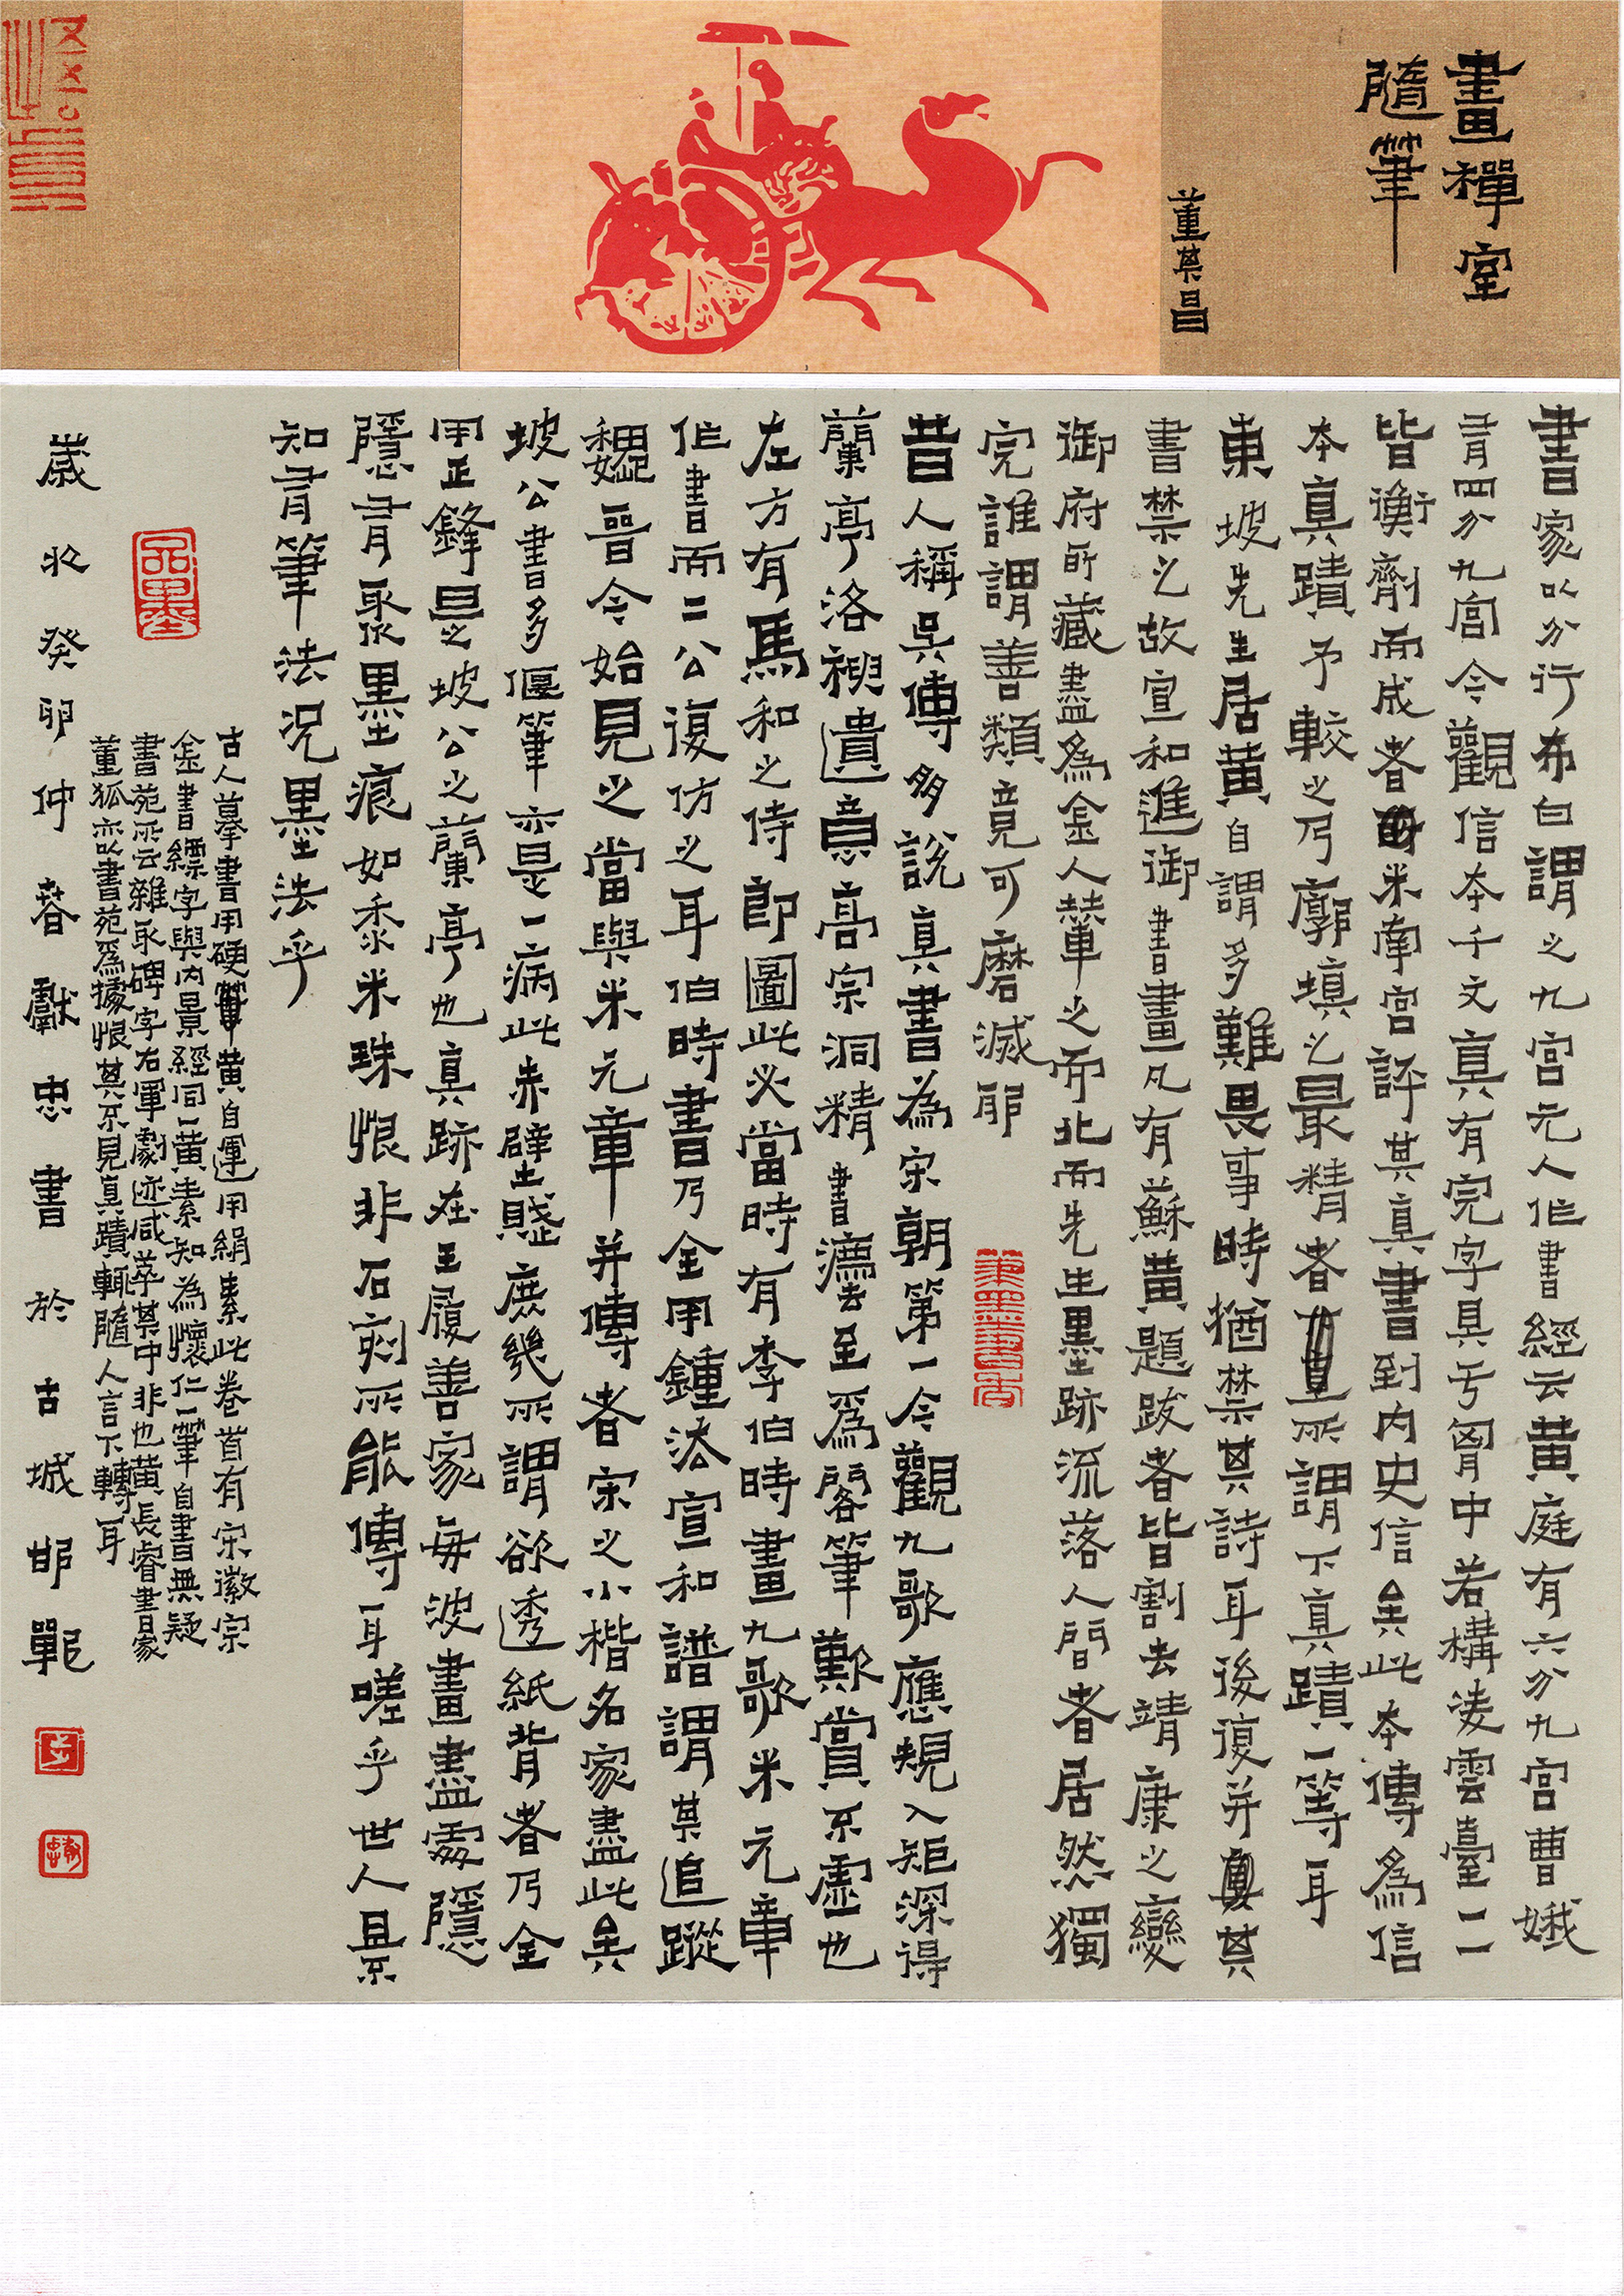 畫禪室
隨筆
董其昌
書家以分行布白謂之九宮元人作書經云黃庭有六分九宮曹娥
有四分九宮今觀信本千文真有完字具于胷中若構凌雲臺一一
皆衡劑而成者米南宮評其真書到內史信矣此本傳為信
本真蹟予較之乃廓填之最精者所謂下真蹟一等耳
東坡先生居黃自謂多難畏事時猶禁其詩耳後復并其
書禁之故宣和進御書畫凡有蘇黃題跋者皆割去靖康之變
御府所藏盡為金人輦之而北而先生墨跡流落人間者居然獨
完誰謂善類竟可磨滅耶
昔人稱吳傅朋說真書為宋朝第一今觀九歌應規入矩深得
蘭亭洛禊遺意高宗洞精書法至爲閣筆歎賞不虛也
左方有馬和之侍郎圖此必當時有李伯時畫九歌米元章
作書而二公復仿之耳伯時書乃全用鍾法宣和譜謂其追蹤
魏晉今始見之當與米元章并傳者宋之小楷名家盡此矣
坡公書多偃筆亦是一病此赤壁賤庶幾所謂欲透紙背者乃全
用正鋒是坡公之蘭亭也真跡在王履善家每波畫盡處隱
隱有聚墨痕如黍米珠恨非石刻所能傳耳嗟乎世人且不
知有筆法況墨法乎
古人摹書用硬黃自運用絹素此卷首有宋徽宗
金書縹字與內景經同一黃素知為懷仁一筆自書無疑
書苑所云雜取碑字右軍劇迹咸萃其中非也黃長睿書家
董狐亦以書苑爲據恨其不見真蹟輒隨人言下轉耳
歲次癸卯仲春獻忠書於古城邯鄲